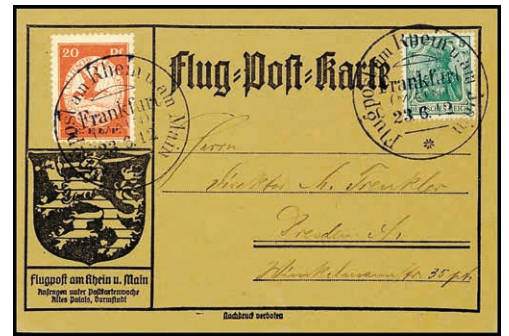 20 Pf
Flugpost am Rhein u. am Main
Frankfurt
23.6.12
Flug=Post=Karte
Flugpost am Rhein u. am Main
Frankfurt
23.6.12
Herrn
Direktor A. Trenkler
Dresden A.
Winkelmannstr. 35 pt.
Flugpost am Rhein u. Main
Anfragen unter Postkartenwoche
Altes Palais, Darmstadt
Nachdruck verboten